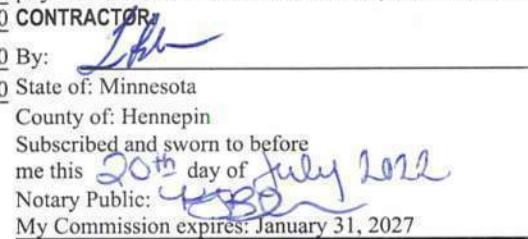 0 CONTRACTOR:
0 By:
0 State of: Minnesota
County of: Hennepin
Subscribed and sworn to before
me this 20th day of July 2022
Notary Public:
My Commission expires: January 31, 2027